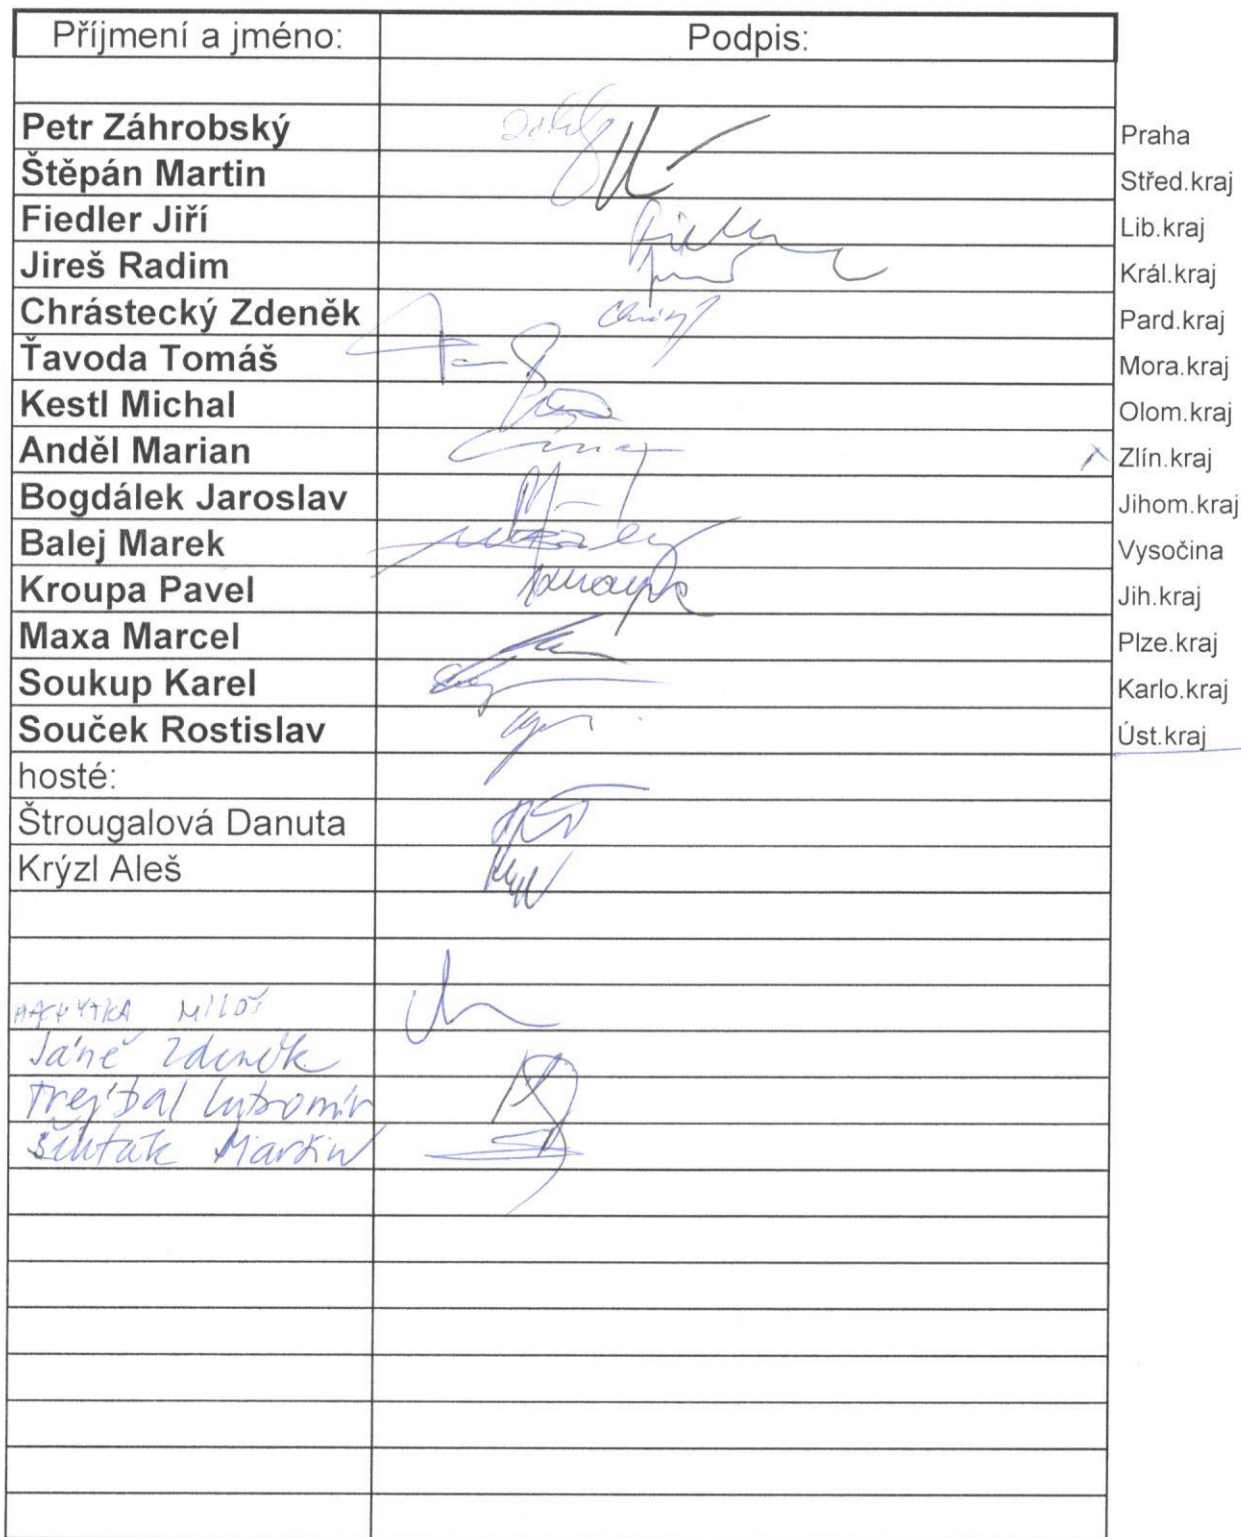 Příjmení a jméno: Podpis:
Petr Záhrobský Praha
Štěpán Martin Střed.kraj
Fiedler Jiří Lib.kraj
Jireš Radim Král.kraj
Chrástecký Zdeněk Pard.kraj
Ťavoda Tomáš Mora.kraj
Kestl Michal Olom.kraj
Anděl Marian Zlín.kraj
Bogdálek Jaroslav Jihom.kraj
Balej Marek Vysočina
Kroupa Pavel Jih.kraj
Maxa Marcel Plze.kraj
Soukup Karel Karlo.kraj
Souček Rostislav Úst.kraj
hosté:
Štrougalová Danuta
Krýzl Aleš
MACHYTKA MILOŠ
Jáně Zdeněk
Trejbal Lubomír
Martin